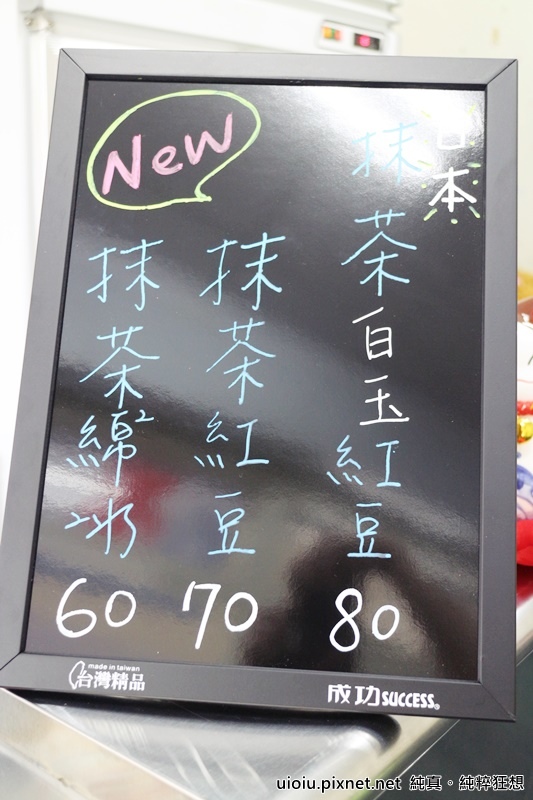 New
日本
抹茶白玉紅豆
80
抹茶紅豆
70
抹茶綿²冰
60
made in taiwan
台灣精品
成功SUCCESS®
uioiu.pixnet.net 純真。純粹狂想